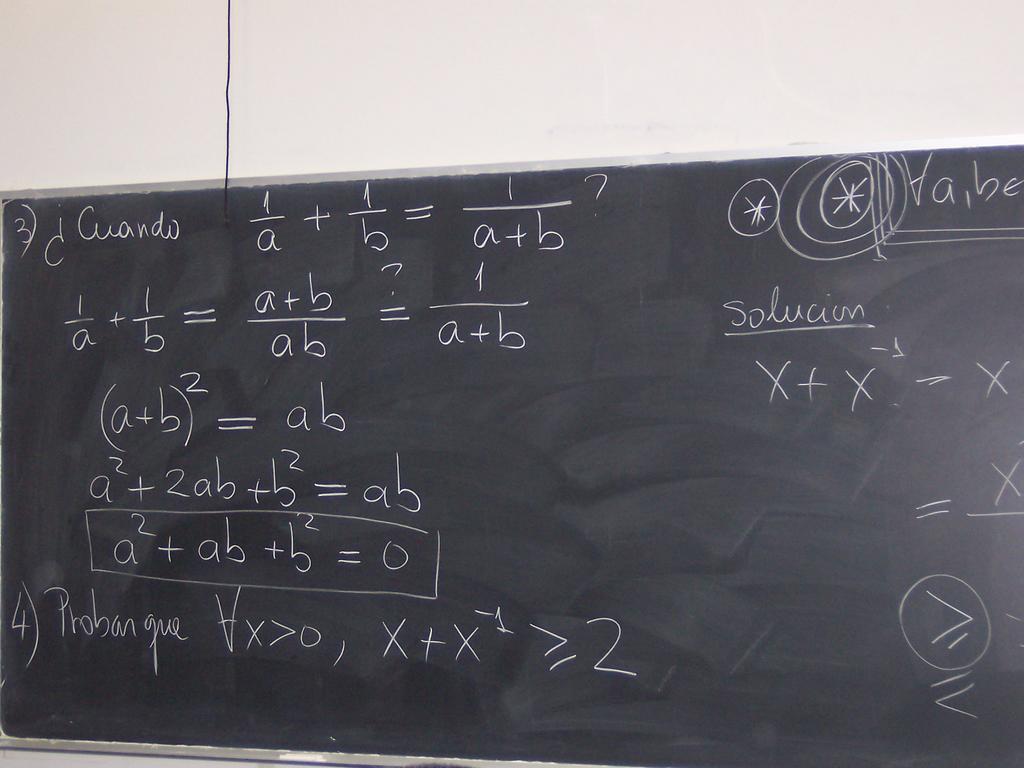 3) ¿Cuando 1/a + 1/b = 1/(a+b) ?
1/a + 1/b = (a+b)/ab =? 1/(a+b)
(a+b)² = ab
a² + 2ab + b² = ab
a² + ab + b² = 0
4) Probar que ∀x>0, x + x⁻¹ ≥ 2
* * ∀a,b∈
Solución:
x + x⁻¹ = x
= x
≥
≤